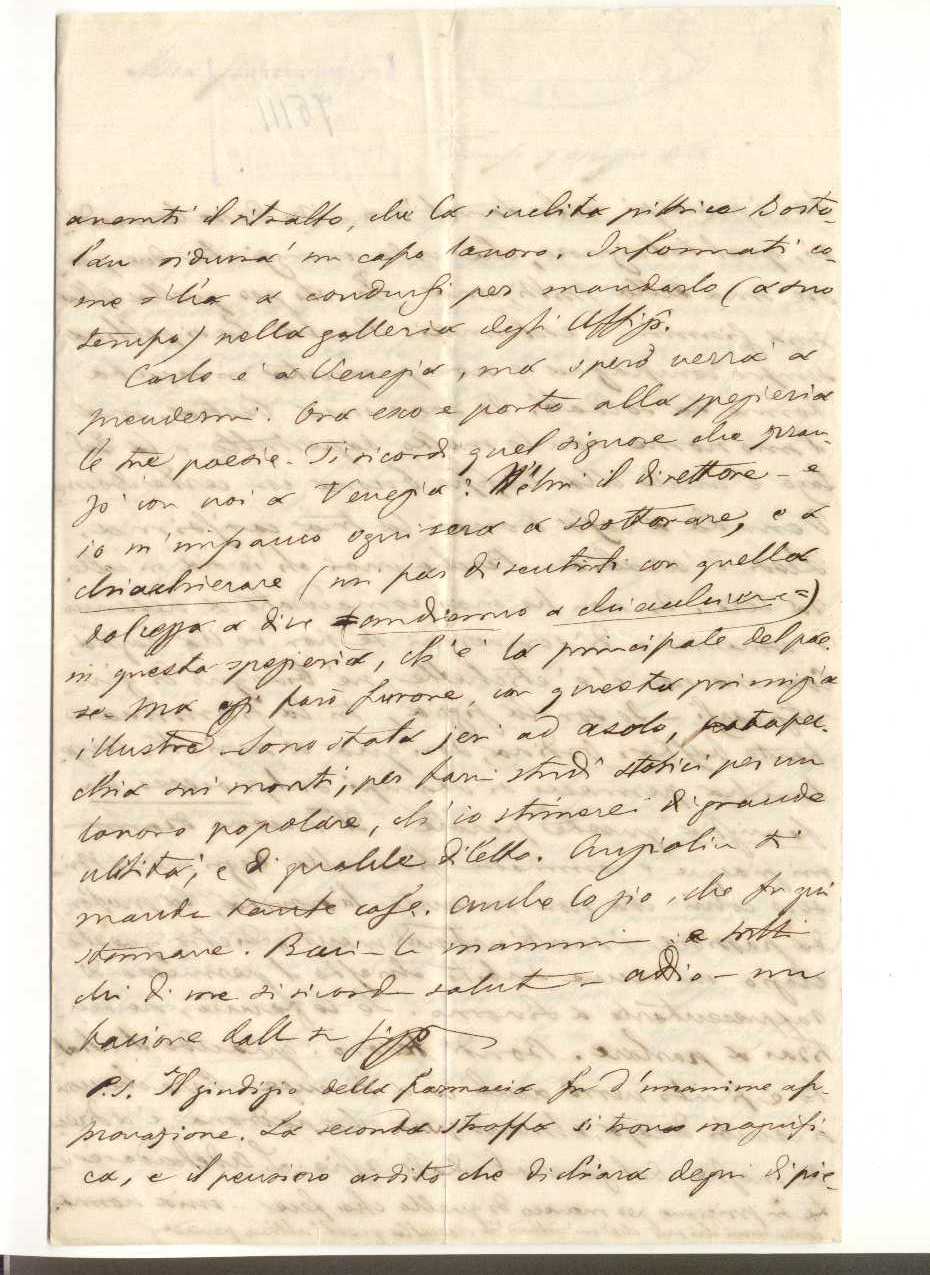 avanti il ritratto, che la inclita pittrice Borto-
lan ridurrà un capo lavoro. Informati co-
me s'ha a condursi per mandarlo (a suo
tempo) nella galleria degli Uffizj.
Carlo è a Venezia, ma spero verrà a
prendermi. Ora esco e porto alla spezieria
le tre poesie. Ti ricordi quel signore che pran-
zò con noi a Venezia? È lui il direttore - e
io m'impanco ogni sera a sdottorare, e a
chiacchierare (mi par di sentirti con quella
dolcezza a dire andiamo a chiacchierare=)
in questa spezieria, ch'è la principale del pae-
se. Ma oggi farò furore, con questa primizia
illustre. Sono stata jeri ad Asolo,
sui monti, per fare studi storici per un
lavoro popolare, ch'io stimerei di grande
utilità, e di qualche diletto. Angiolin ti
manda tante cose. Anche lo zio, che fu qui
stamane. Baci la mamma, e tutti
chi di me si ricorda saluta - addio - un
bacione dalla tua
P.S. Il giudizio della farmacia fu d'unanime ap-
provazione. La seconda stroffa si trova magnifi-
ca, e il pensiero ardito che dichiara degni di pie-